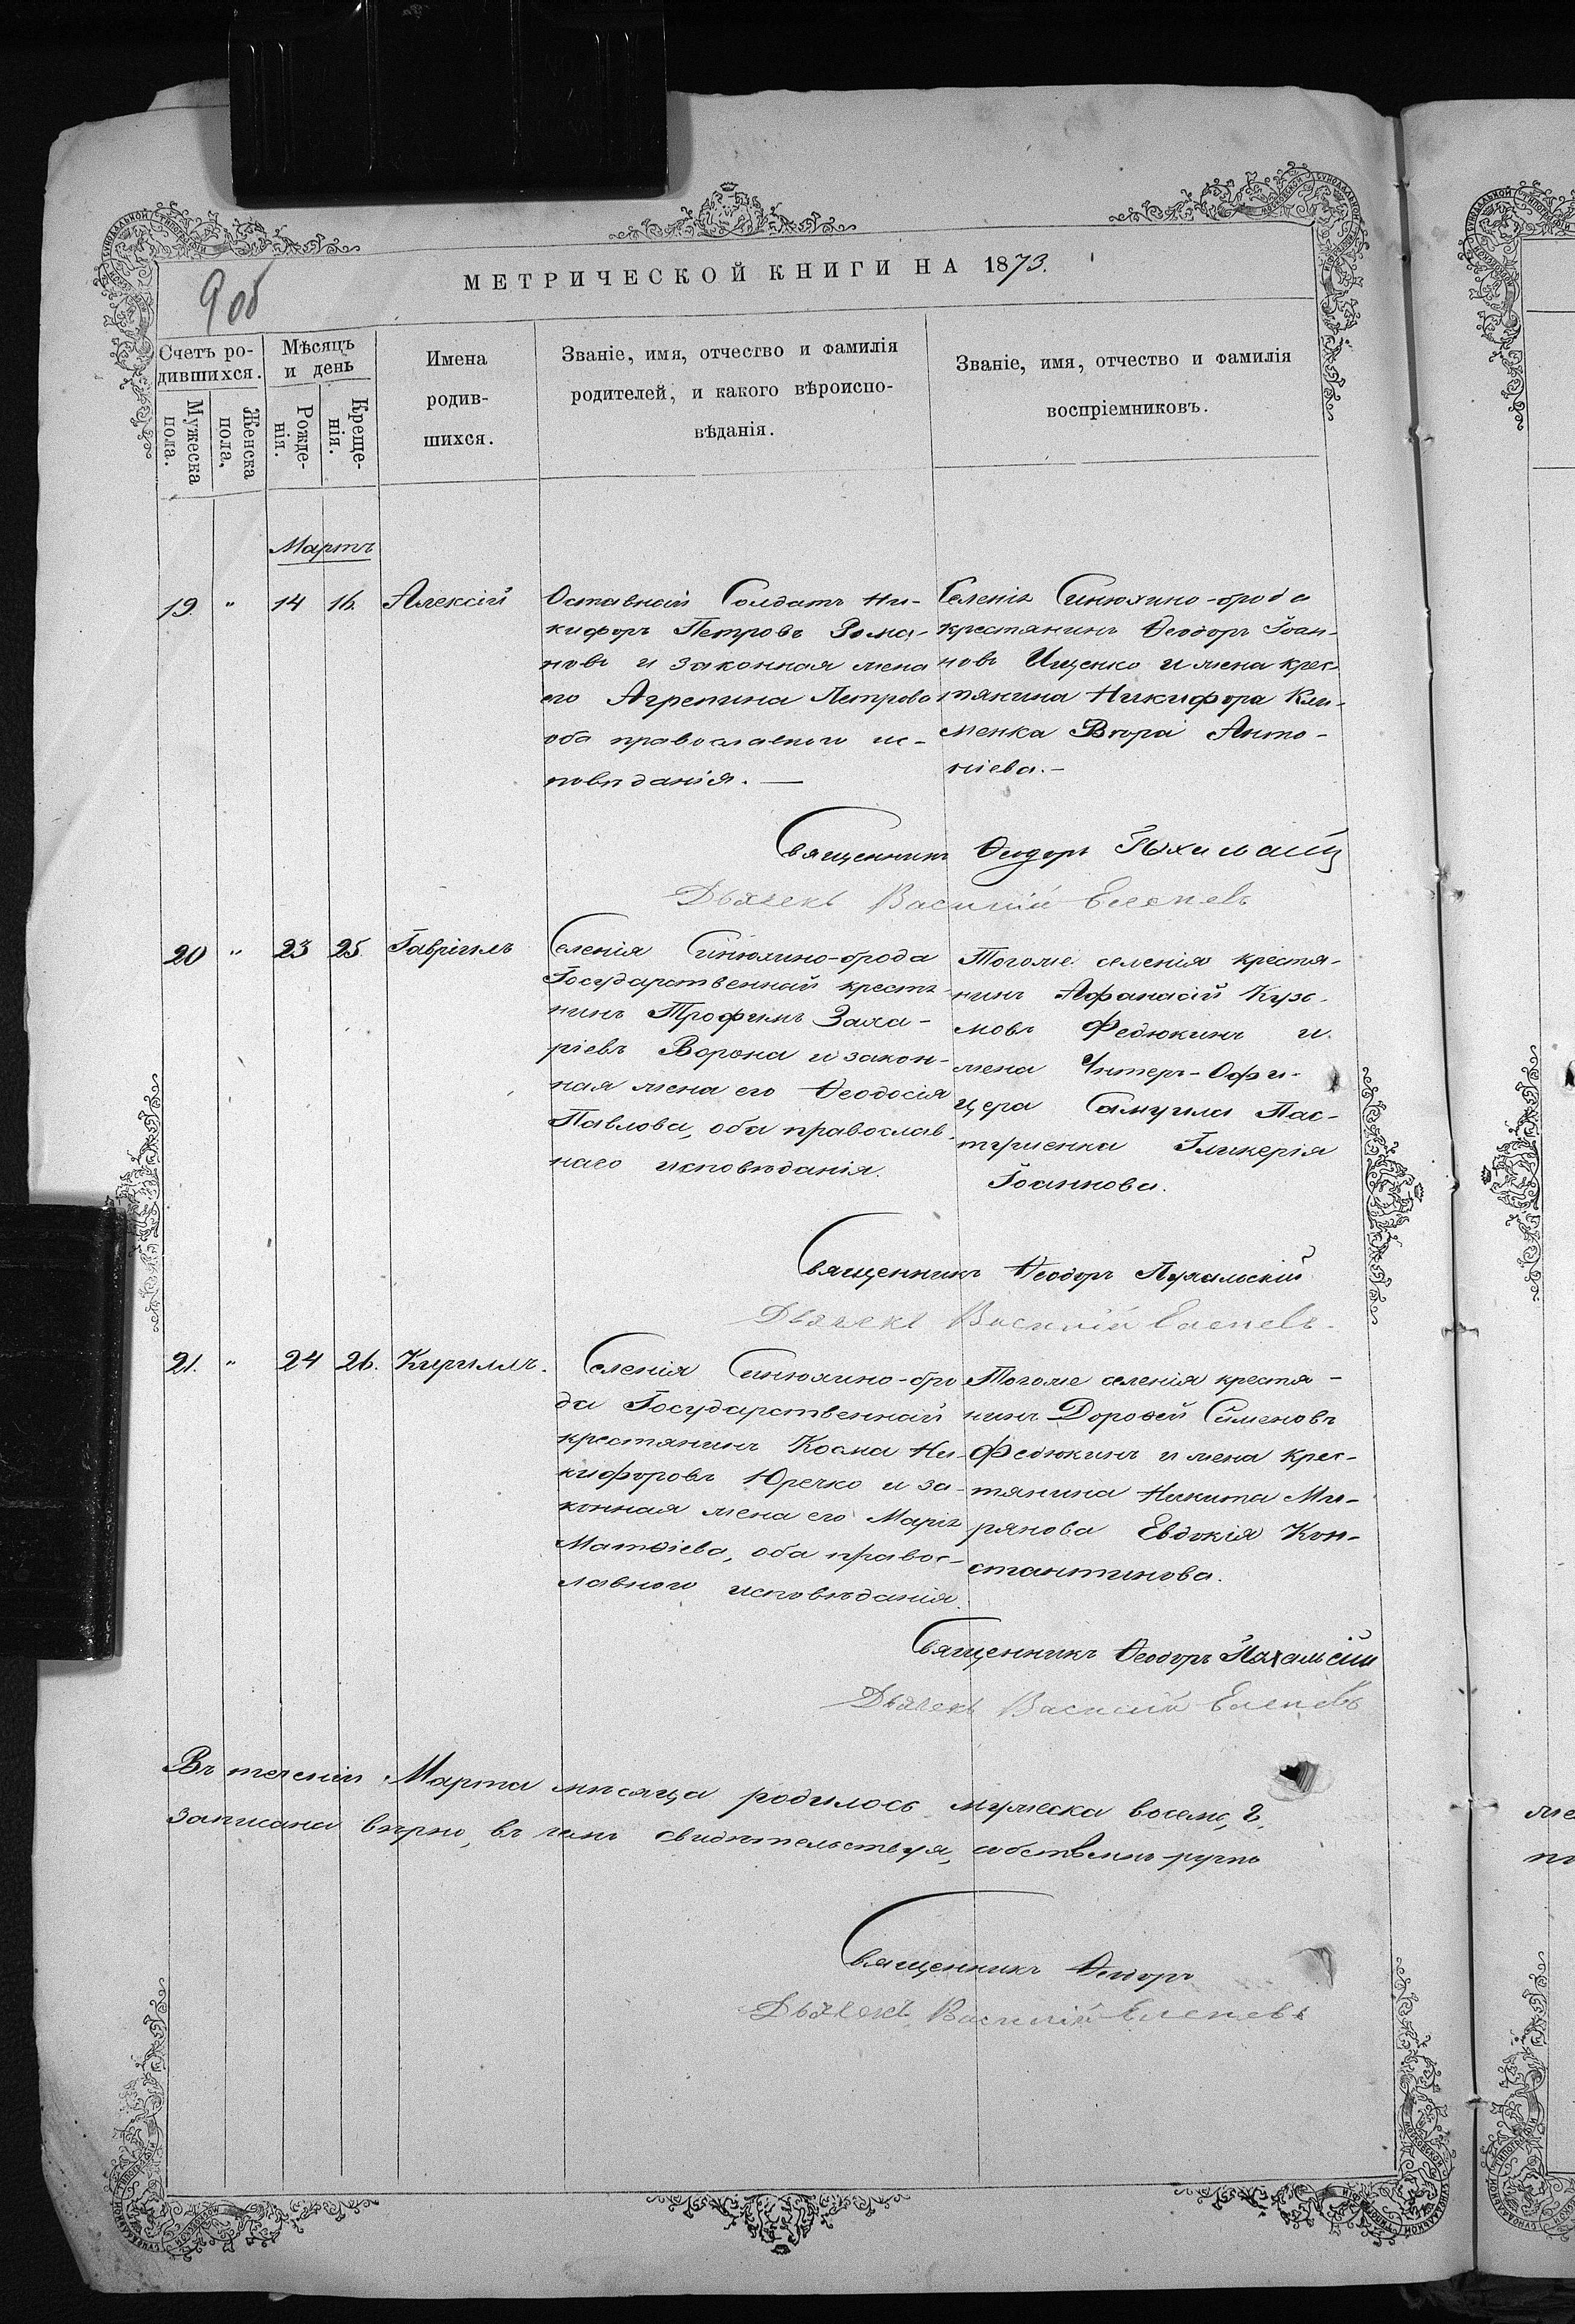 МЕТРИЧЕСКОЙ КНИГИ НА 1873.
9 об
Счетъ ро-
дившихся.
Мужеска
пола.
Женска
пола.
Мѣсяцъ
и день
Рожде-
нія.
Креще-
нія.
Имена
родив-
шихся.
Званіе, имя, отчество и фамилія
родителей, и какого вѣроиспо-
вѣданія.
Званіе, имя, отчество и фамилія
воспріемниковъ.
Мартъ
19. " 14 16. Алексій
Оставной Солдатъ Ни-
кифоръ Петровъ Рома-
новъ и законная жена
его Агрепина Петрова
оба православного ис-
повѣданія. —
Селенія Синюхино-брода
крестянинъ Ѳеодоръ Іоан-
новъ Ищенко и жена крес-
тянина Никифора Кли-
менка Антo-
ніева. —
Священникъ Ѳеодоръ
Дьячекъ Василій
20 " 23 25. Гавріилъ
Селенія Синюхино-брода
Государственной крестя-
нинъ Трофимъ Заха-
ріевъ Ворона и закон-
ная жена его Ѳеодосія
Павлова, оба православ-
наго исповѣданія.
Тогоже селенія крестя-
нинъ Афанасій Кузь-
мовъ Федюкинъ и
жена Унтеръ-Офи-
цера Самуила Пас-
тушенка Гликерія
Іоаннова.
Священникъ Ѳеодоръ Пухальскій
Дьячекъ Василій
21. " 24 26. Кириллъ.
Селенія Синюхино-бро
да Государственной
крестянинъ Косма Ни-
кифоровъ Юречко и за-
конная жена его Марія
Матѳіева, оба правос-
лавного исповѣданія.
Тогоже селенія крестя-
нинъ Дороѳей Сименовъ
Федюкинъ и жена крес-
тянина Никита Ми-
рянова Евдокія Кон-
стантинова.
Священникъ Ѳеодоръ Пухальскій
Дьячекъ Василій
Въ теченіи Марта мѣсяца родилось мужеска восемь,
записана вѣрно, въ чемъ свидѣтельствуя,
Священникъ Ѳеодоръ
Дьячекъ Василій